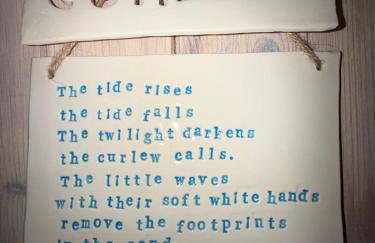 The tide rises
the tide falls
The twilight darkens
the curlew calls.
The little waves
with their soft white hands
remove the footprints
in the sand